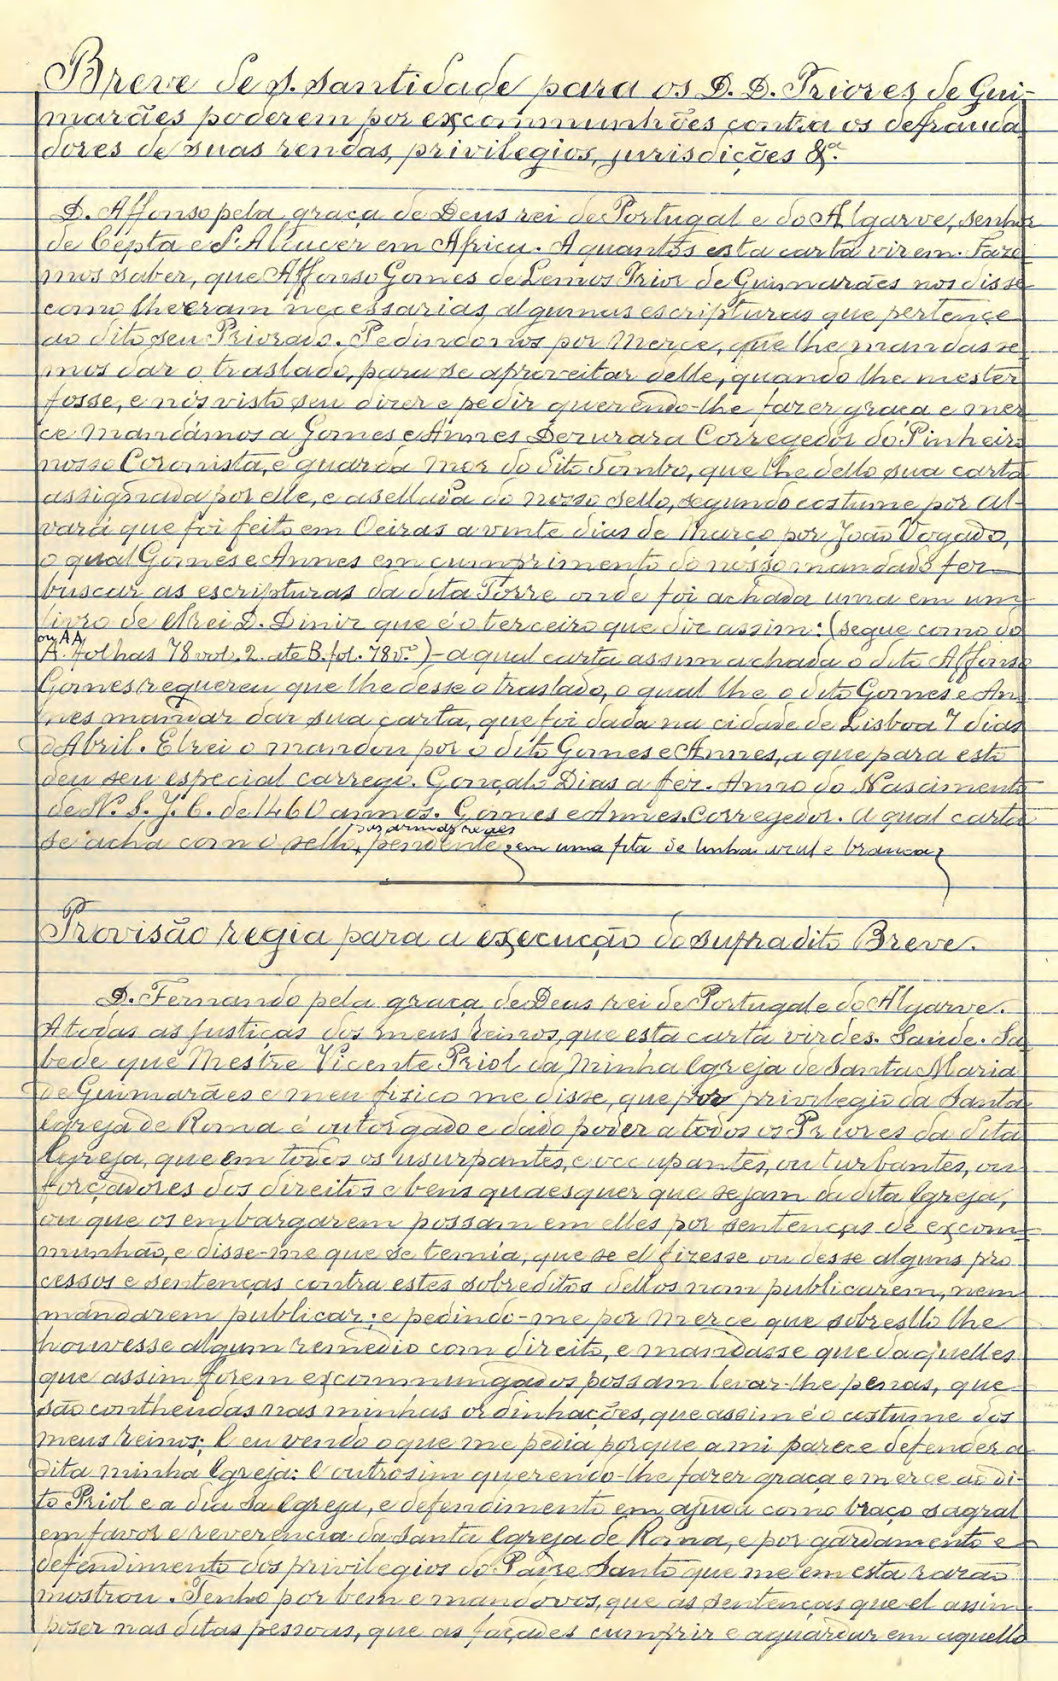 Breve de S. Santidade para os D. D. Priores de Gui-
marães poderem por excommunhões contra os defrauda
dores de suas rendas, privilegios, jurisdições &ª.
D. Affonso pela graça de Deus rei de Portugal e do Algarve, senhor
de Cepta e d'Alcacer em Africa. A quantos esta carta virem. Faze
mos saber, que Affonso Gomes de Lemos Prior de Guimarães nos disse
como lhe eram necessarias algumas escripturas que pertence
ao dito seu Priorado. Pedindo nos por merce, que lhe mandasse
mos dar o traslado, para se aproveitar delle, quando lhe mester
fosse, e nós visto seu dizer e pedir querendo-lhe fazer graça e mer
ce mandámos a Gomes e Annes Dezurara Corregedor do Pinheiro
nosso Coronista, e guarda mor do dito Tombo, que lhe dello sua carta
assignada por elle, e asellada do nosso sello, segundo costume por al-
vará que foi feito em Oeiras a vinte dias de Março por João Vogado,
o qual Gomes e Annes em cumprimento do nosso mandado fez
buscar as escripturas da dita Torre onde foi achada uma em um
livro de ElRei D. Diniz que é o terceiro que diz assim: (segue como do
ou AA
A. folhas 78 vol. 2. até B. fol. 78 vº.) - a qual carta assim achada o dito Affonso
Gomes requereu que lhe desse o traslado, o qual lhe o dito Gomes e An
nes mandar dar sua carta, que foi dada na cidade de Lisboa 7 dias
d'Abril. Elrei o mandou por o dito Gomes e Annes, a que para esto
deu seu especial carrego. Gonçalo Dias a fez. Anno do Nascimento
de N. S. J. C. de 1460 annos. Gomes e Annes Corregedor. A qual carta
das armas reaes
se acha com o sello pendente em uma fita de linha azul e branca
Provisão regia para a execução do supradito Breve.
D. Fernando pela graça de Deus rei de Portugal e do Algarve.
A todas as justiças dos meus reinos, que esta carta virdes. Saude. Sa
bede que Mestre Vicente Priol da minha Igreja de Santa Maria
de Guimarães e meu fizico me disse, que por privilegio da Santa
Igreja de Roma é outorgado e dado poder a todos os Priores da dita
Igreja, que em todos os usurpantes, e occupantes, ou turbantes, ou
forçadores dos direitos e bens quaesquer que sejam da dita Igreja,
ou que os embargarem possam em elles por sentenças de excom-
munhão, e disse-me que se temia, que se el fizesse ou desse alguns pro
cessos e sentenças contra estes sobreditos dellos nom publicarem, nem
mandarem publicar; e pedindo-me por merce que sobrello lhe
houvesse algum remedio com direito, e mandasse que daquelles
que assim forem excommungados possam levar-lhe penas, que
são contheudas nas minhas ordinhações, que assim é o costume dos
meus reinos; E eu vendo o que me pedia, porque a mi parece defender a
dita minha Igreja: E outrosim querendo-lhe fazer graça e merce ao di-
to Priol e a dita sa Igreja, e defendimento em ajuda como braço sagral
em favor e reverencia da Santa Igreja de Roma, e por gardamento e
defendimento dos privilegios do Padre Santo que me em esta razão
mostrou. Tenho por bem e mandovos, que as sentenças que el assim
poser nas ditas pessoas, que as façades cumprir e aguardar em aquello